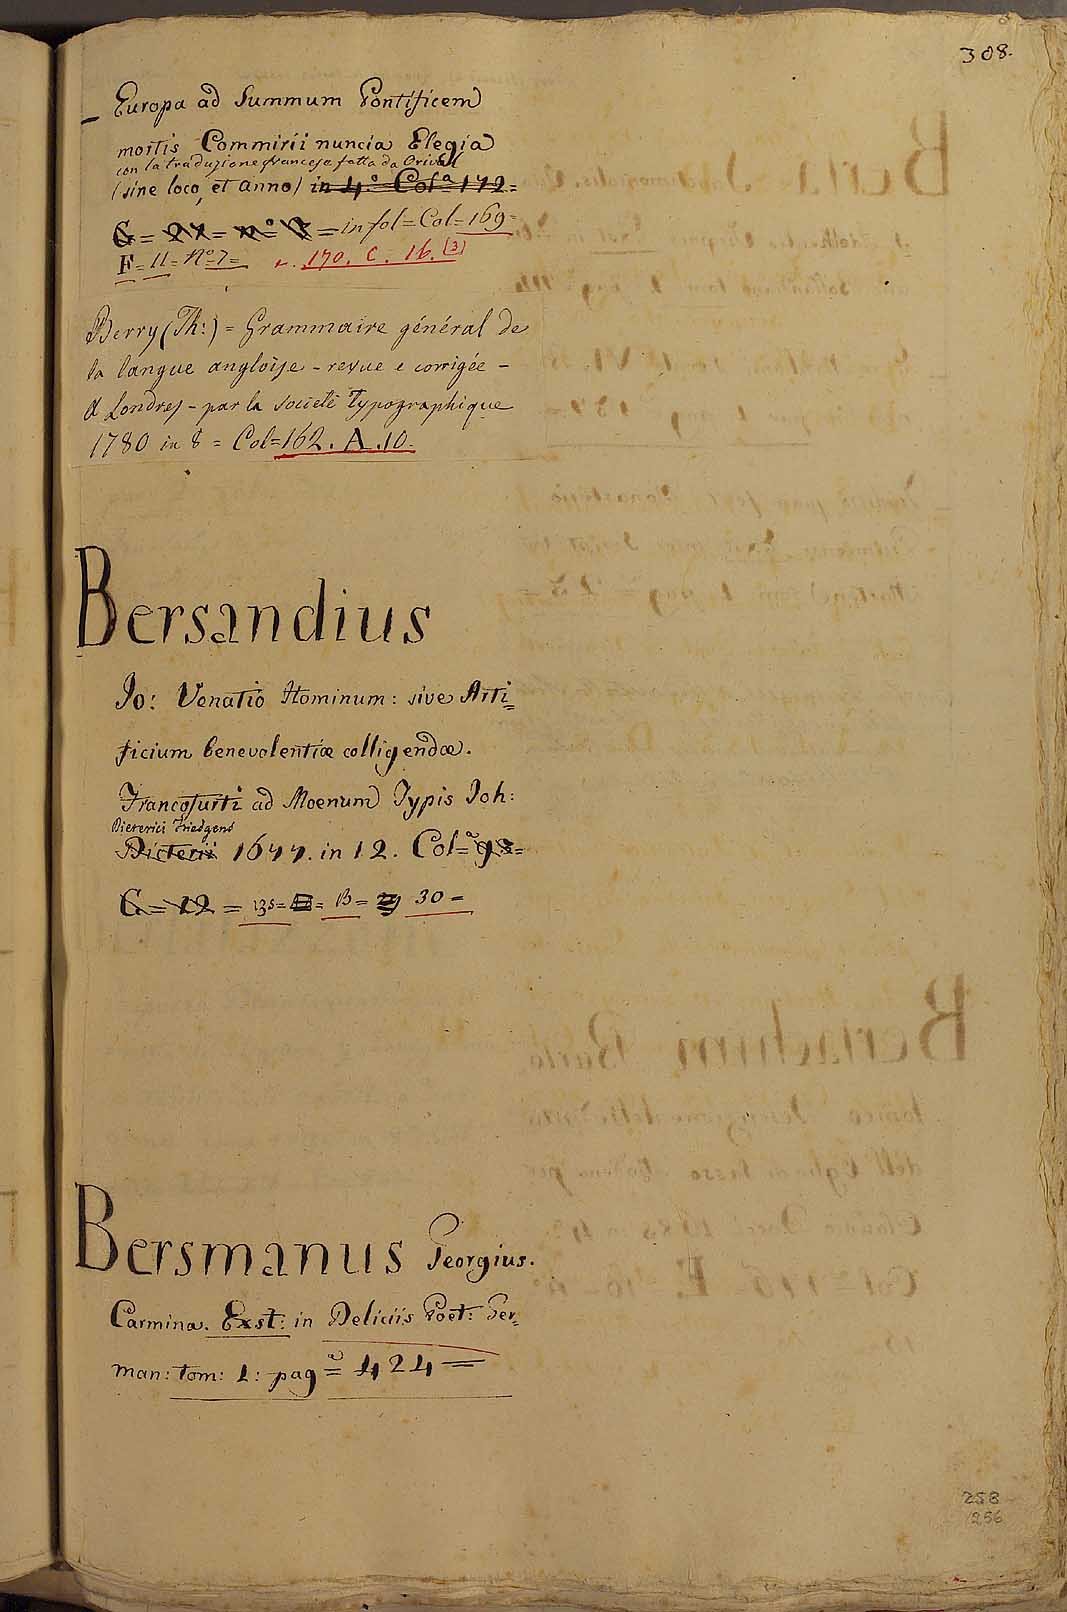 308.
Europa ad Summum Pontificem
mortis Commirii nuncia Elegia
con la traduzione francese fatta da
(sine loco, et anno) in 4.º Col.ª 172=
G = 27 = nº 7 = in fol = Col = 169=
F = 11 = Nº 7 = 170. C. 16. (3)
Berry (Th:) = Grammaire général de
la langue angloise - revue e corrigée -
à Londres - par la société typographique
1780 in 8 = Col=162. A. 10.
Bersandius
Jo: Venatio Hominum: sive Arti=
ficium benevolentiæ colligendæ.
Francofurti ad Moenum Typis Joh:
Dieterici Friedgens
Dieterii 1677. in 12. Col=ª 93=
G = 12 = 135 = B = 30 =
Bersmanus Georgius.
Carmina. Exst: in Deliciis Poet: Ger=
man: tom: 1: pag=ª 424=
258
256